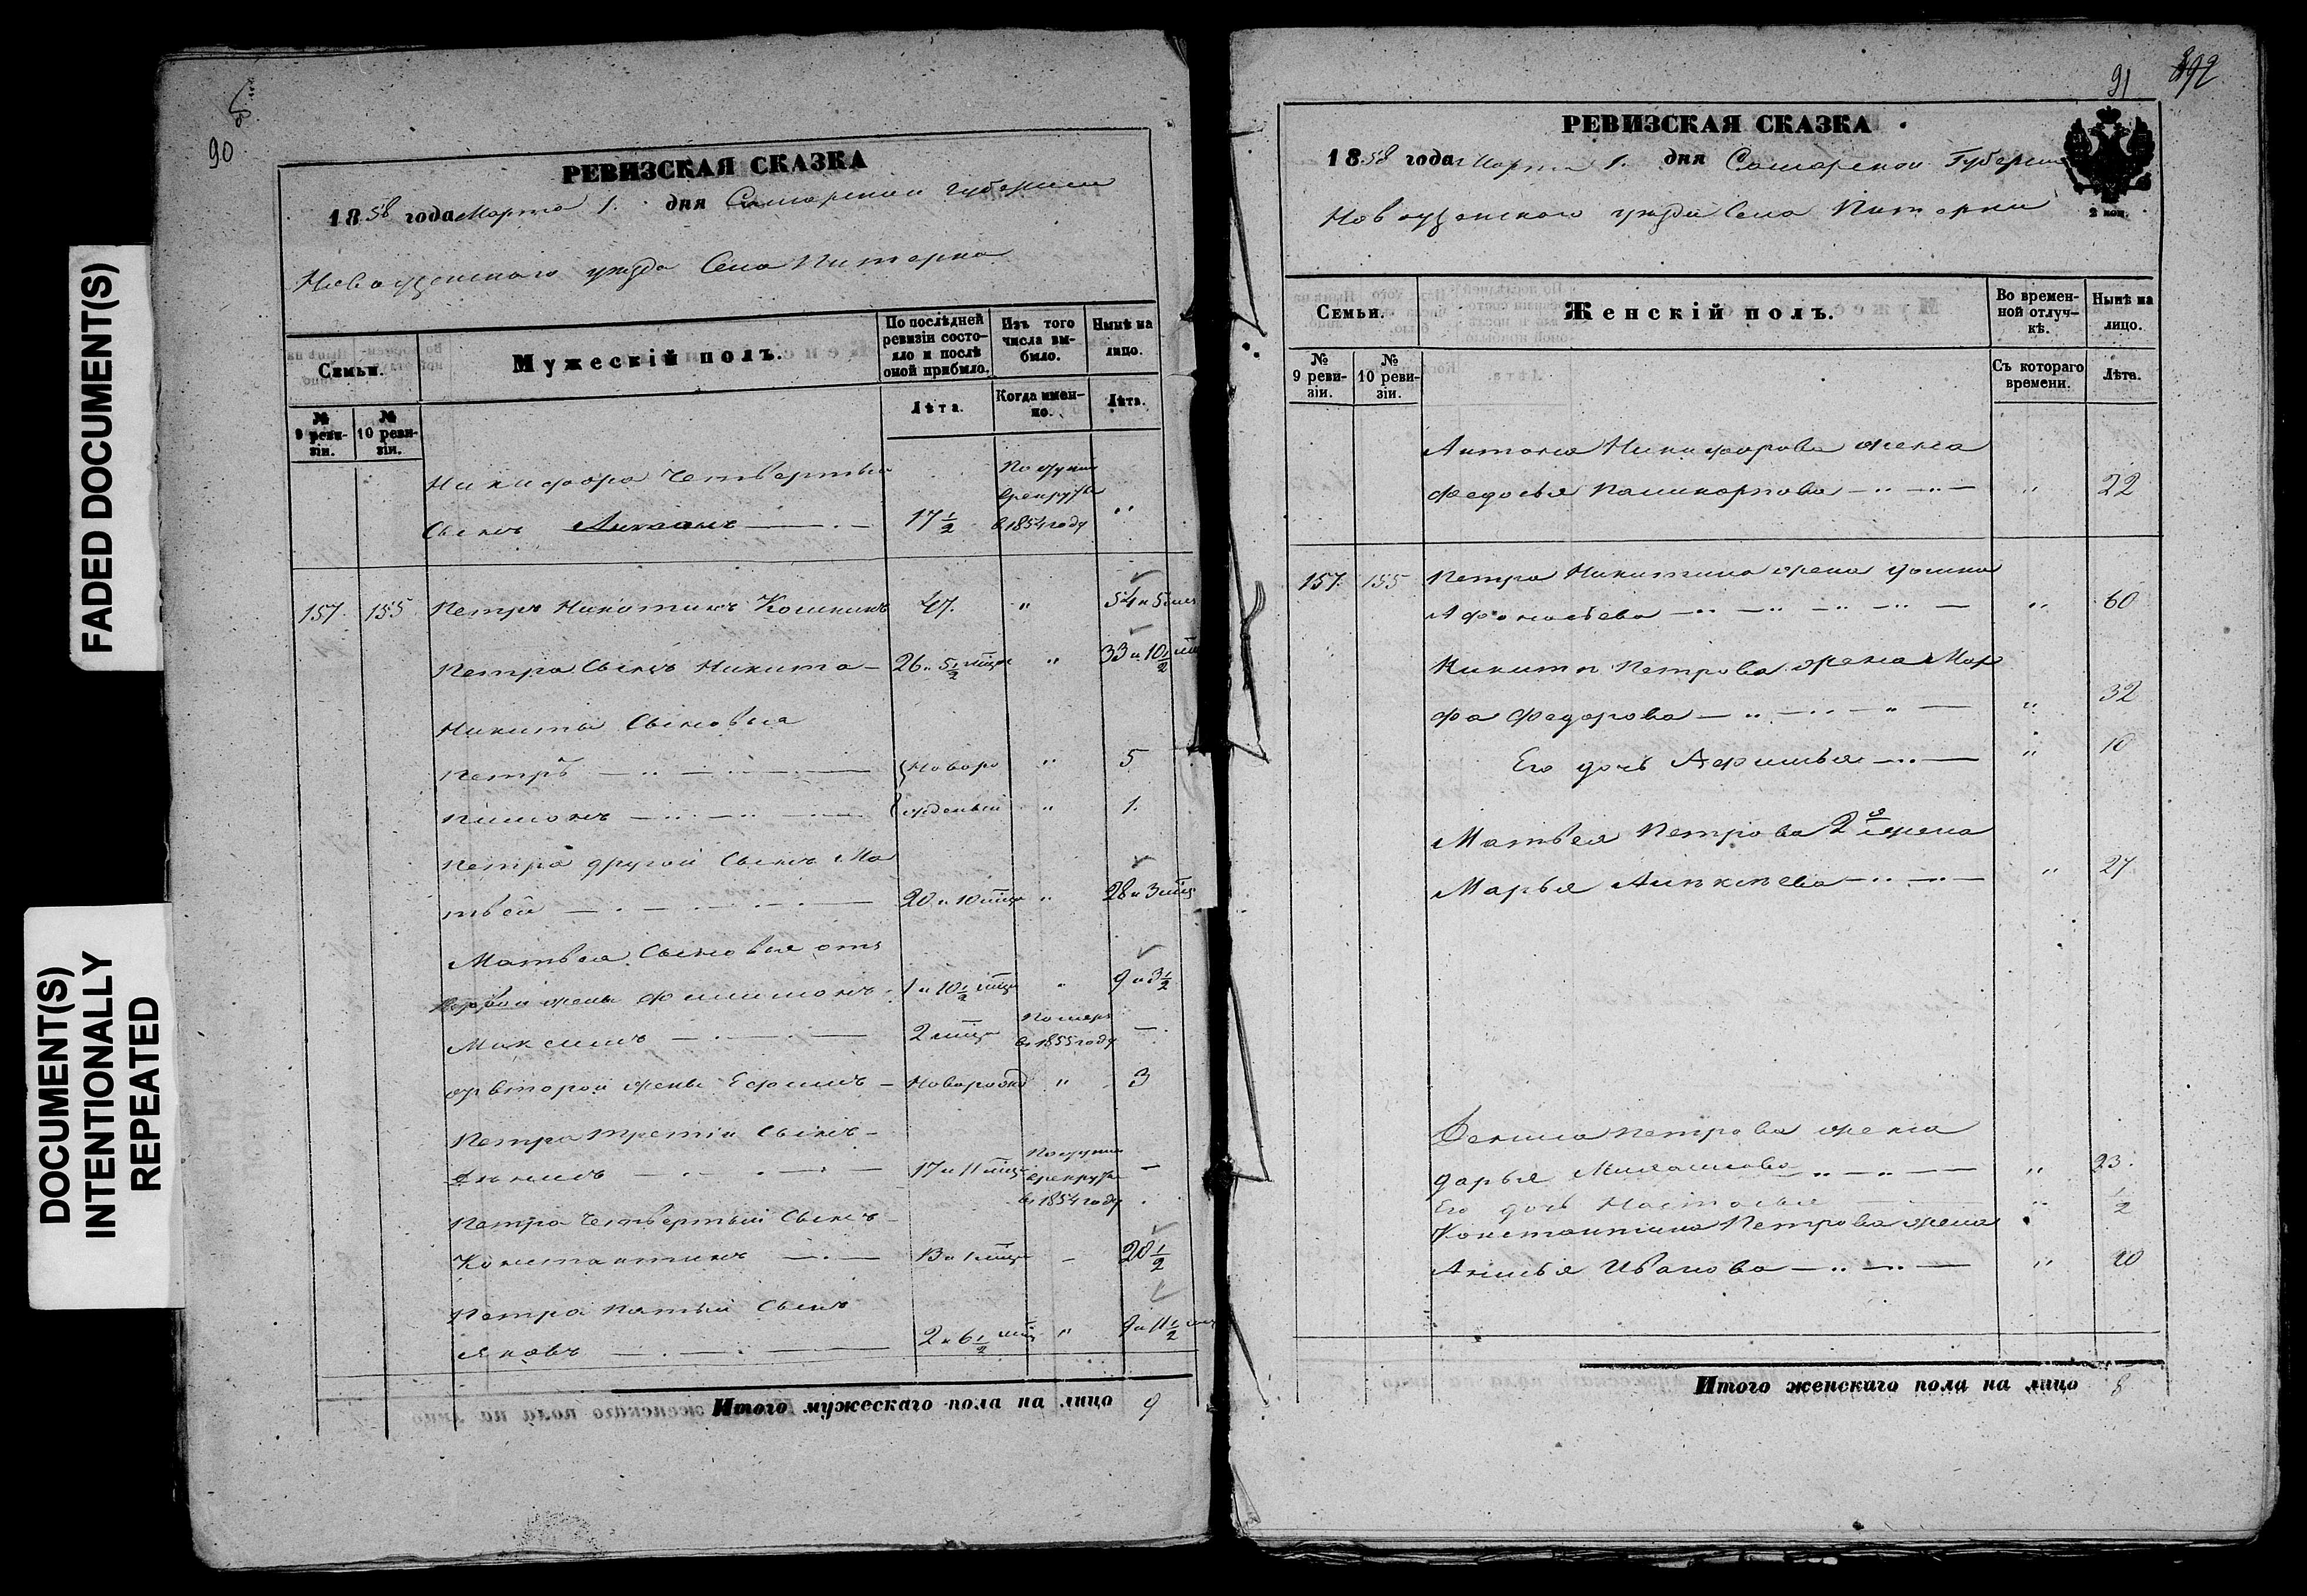 FADED DOCUMENT(S)
DOCUMENT(S)
INTENTIONALLY
REPEATED
90
РЕВИЗСКАЯ СКАЗКА
1858 года Марта 1. дня Самарской губернии
Новоузенского уезда Села Питерка
Семьи.
Мужескій полъ.
По послѣдней ревизіи состояло и послѣ оной прибыло.
Изъ того числа выбыло.
Нынѣ на лицо.
№ 9 ревизіи.
№ 10 ревизіи.
Лѣта.
Когда именно.
Лѣта.
Никифора Четвертый
Сынъ Антонъ 17 1/2 в 1854 году "
157. 155 Петръ Никитинъ 47. " 54 и 5 мец
Петра Сынъ Никита 26 и 5 1/2 мцъ " 33 и 10 1/2
Никиты Сыновья
Петръ Новоро " 5
Пимонъ жденный " 1.
Петра другой Сынъ Ма
твей 20 и 10 мцъ " 28 и 3 мцъ
Матвея Сыновья отъ
первой жены Филимонъ 1 и 10 1/2 мцъ " 9 и 3 1/2
Максимъ 2 мцъ Померъ в 1855 году —
от второй жены Ефимъ Новорожд " 3
Петра третій Сынъ
17 и 11 мцъ в 1854 году —
Петра Четвертый Сынъ
Константинъ 13 и 1 мцъ — 20 1/2
Петра пятый Сынъ
Яковъ 2 и 6 1/2 мцъ " 9 и 11 1/2
Итого мужескаго пола на лицо 9
91
РЕВИЗСКАЯ СКАЗКА
1858 года Марта 1. дня Самарской Губернии
Новоузенского уезда Села Питерки
2 коп.
Семьи.
Женскій полъ.
Во временной отлучкѣ.
Нынѣ на лицо.
№ 9 ревизіи.
№ 10 ревизіи.
Съ котораго времени.
Лѣта.
Антона Никифорова жена
Федосья Поликарпова " 22
157. 155 Петра Никитина жена
Афонасьева " 60
Никиты Петрова жена Мар
фа Федорова " 32
Его дочь " 10
Матвея Петрова 2я жена
Марья Алексеева " 27
Петрова жена
дарья " 23.
Его дочь Настасья " 1/2
Константина Петрова жена
Иванова " 20
Итого женскаго пола на лицо 8